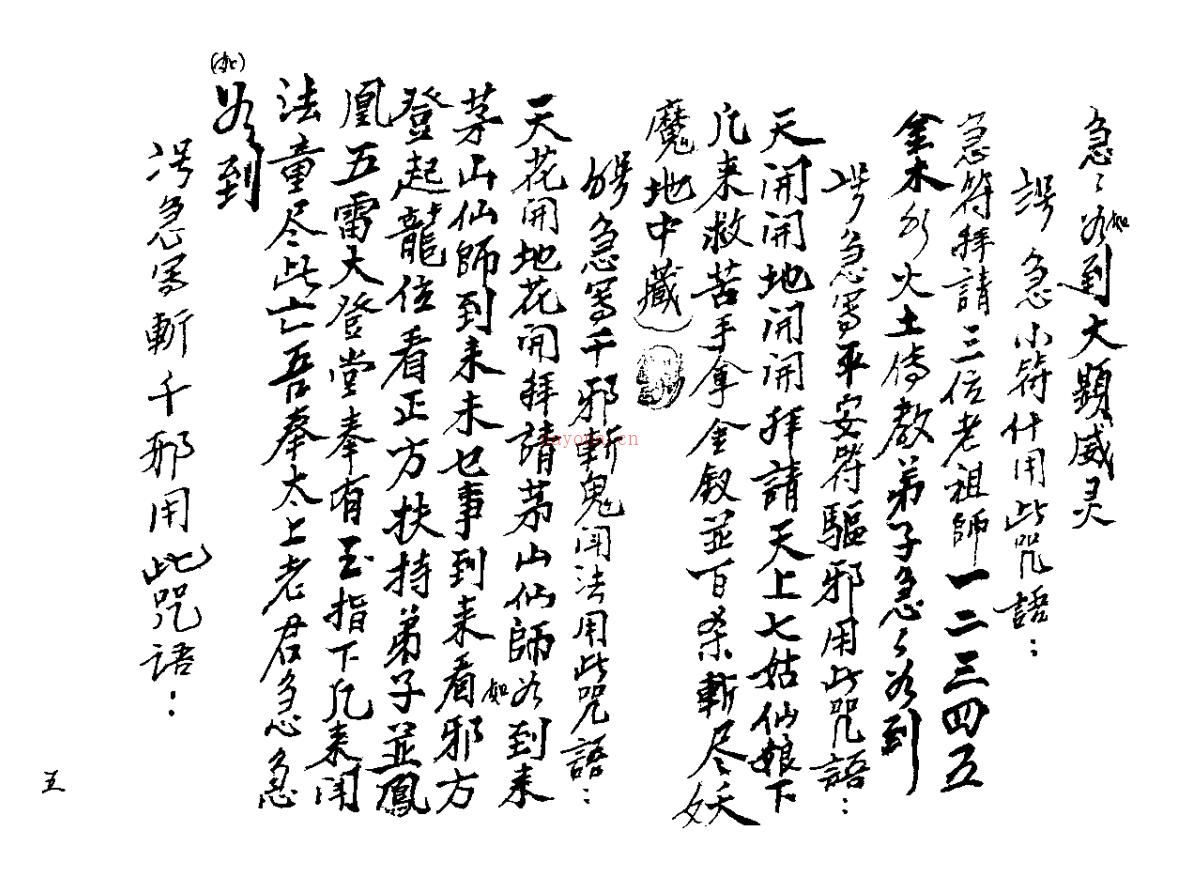 急〻如到大顯威灵
急小符什用此咒語：
急符拜請三位老祖師一二三四五
金木水火土傳教弟子急〻如到
急寫平安符驅邪用此咒語：
天開開地開開拜請天上七姑仙娘下
凡来救苦手拿金釵並百杀斬尽妖
魔地中藏
急寫千邪斬鬼闹法用此咒語：
天花開地花開拜請茅山仙師如到来
茅山仙師到来未乜事到来看邪方
登起龍位看正方扶持弟子並鳳
凰五雷大登堂奉有玉指下凡来闹
法童尽此亡吾奉太上老君急急
(如)
到
急寫斬千邪用此咒语：
五